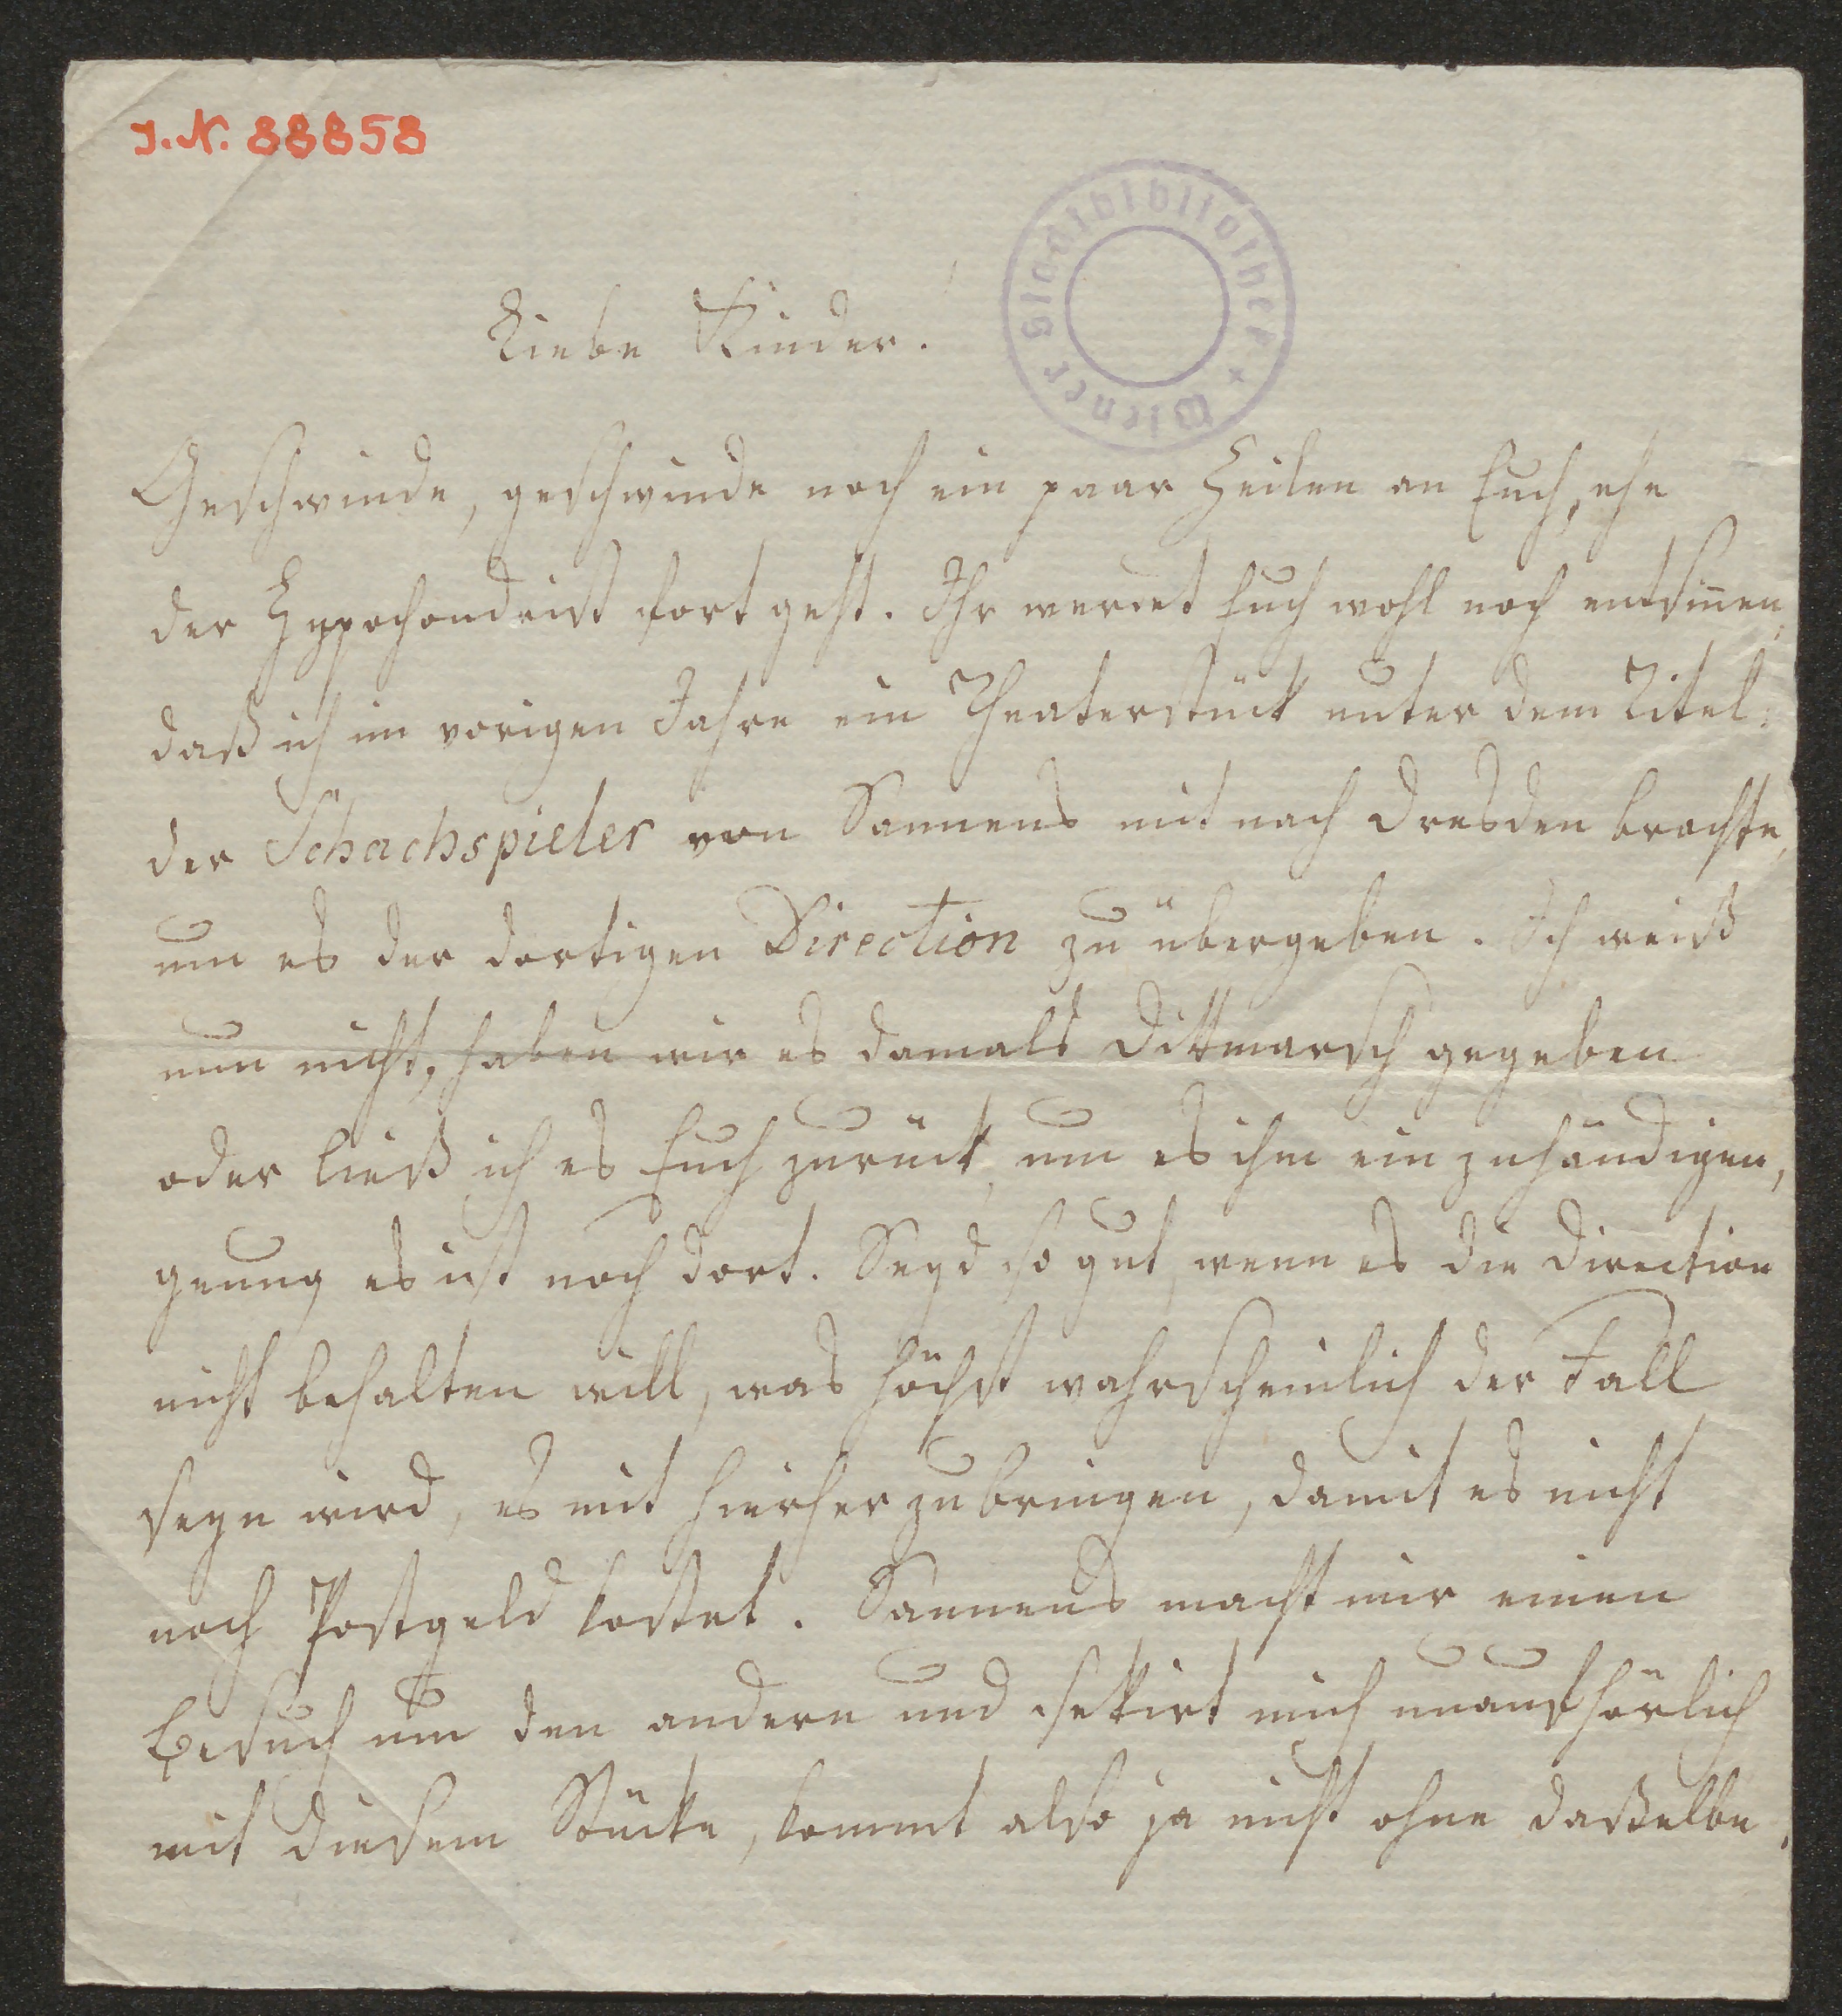 I.N. 88858
Wiener Stadtbibliothek
Liebe Kinder!
Geschwinde, geschwinde noch ein paar Zeilen an Euch, ehe
der Hypochondrist fort geht. Ihr werdet Euch wohl noch entsinnen,
daß ich im vorigen Jahre ein Theaterstück unter dem Titel:
der Schachspieler von Sannens mit nach Dresden brachte,
um es der dortigen Direction zu übergeben. Ich weiß
nun nicht, haben wir es damals Dittmarsch gegeben
oder ließ ich es Euch zurück, um es ihm ein zuhändigen,
genug es ist noch dort. Seyd so gut, wenn es die Direction
nicht behalten will, was höchst wahrscheinlich der Fall
seyn wird, es mit hierher zu bringen, damit es nicht
noch Postgeld kostet. Sannens macht mir einen
Besuch um den andern und sekirt mich unaufhörlich
mit diesem Stücke, kommt also ja nicht ohne daßelbe.